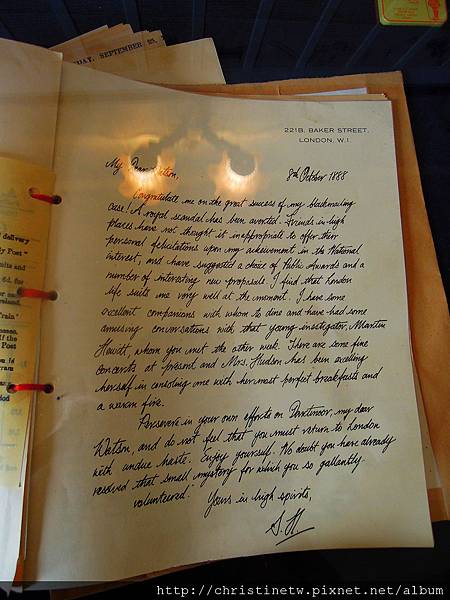 DAY, SEPTEMBER 25,
221B, BAKER STREET,
LONDON, W.1.
My Dear Watson,
8th October 1888
Congratulate me on the great success of my blackmailing
case! A royal scandal has been averted. Friends in high
places have not thought it inappropriate to offer their
personal felicitations upon my achievement in the National
interest, and have suggested a choice of Public Awards and a
number of interesting new proposals. I find that London
life suits me very well at the moment. I have some
excellent companions with whom to dine and have had some
amusing conversations with that young investigator, Martin
Hewitt, whom you met the other week. There are some fine
concerts at present and Mrs. Hudson has been excelling
herself in enticing me with her most perfect breakfasts and
a warm fire.
Persevere in your own efforts on Dartmoor, my dear
Watson, and do not feel that you must return to London
with undue haste. Enjoy yourself. No doubt you have already
resolved that small mystery for which you so gallantly
volunteered.
Yours in high spirits,
S. H.
delivery
by Post"
6d. for
Train"
Post
http://christinetw.pixnet.net/album